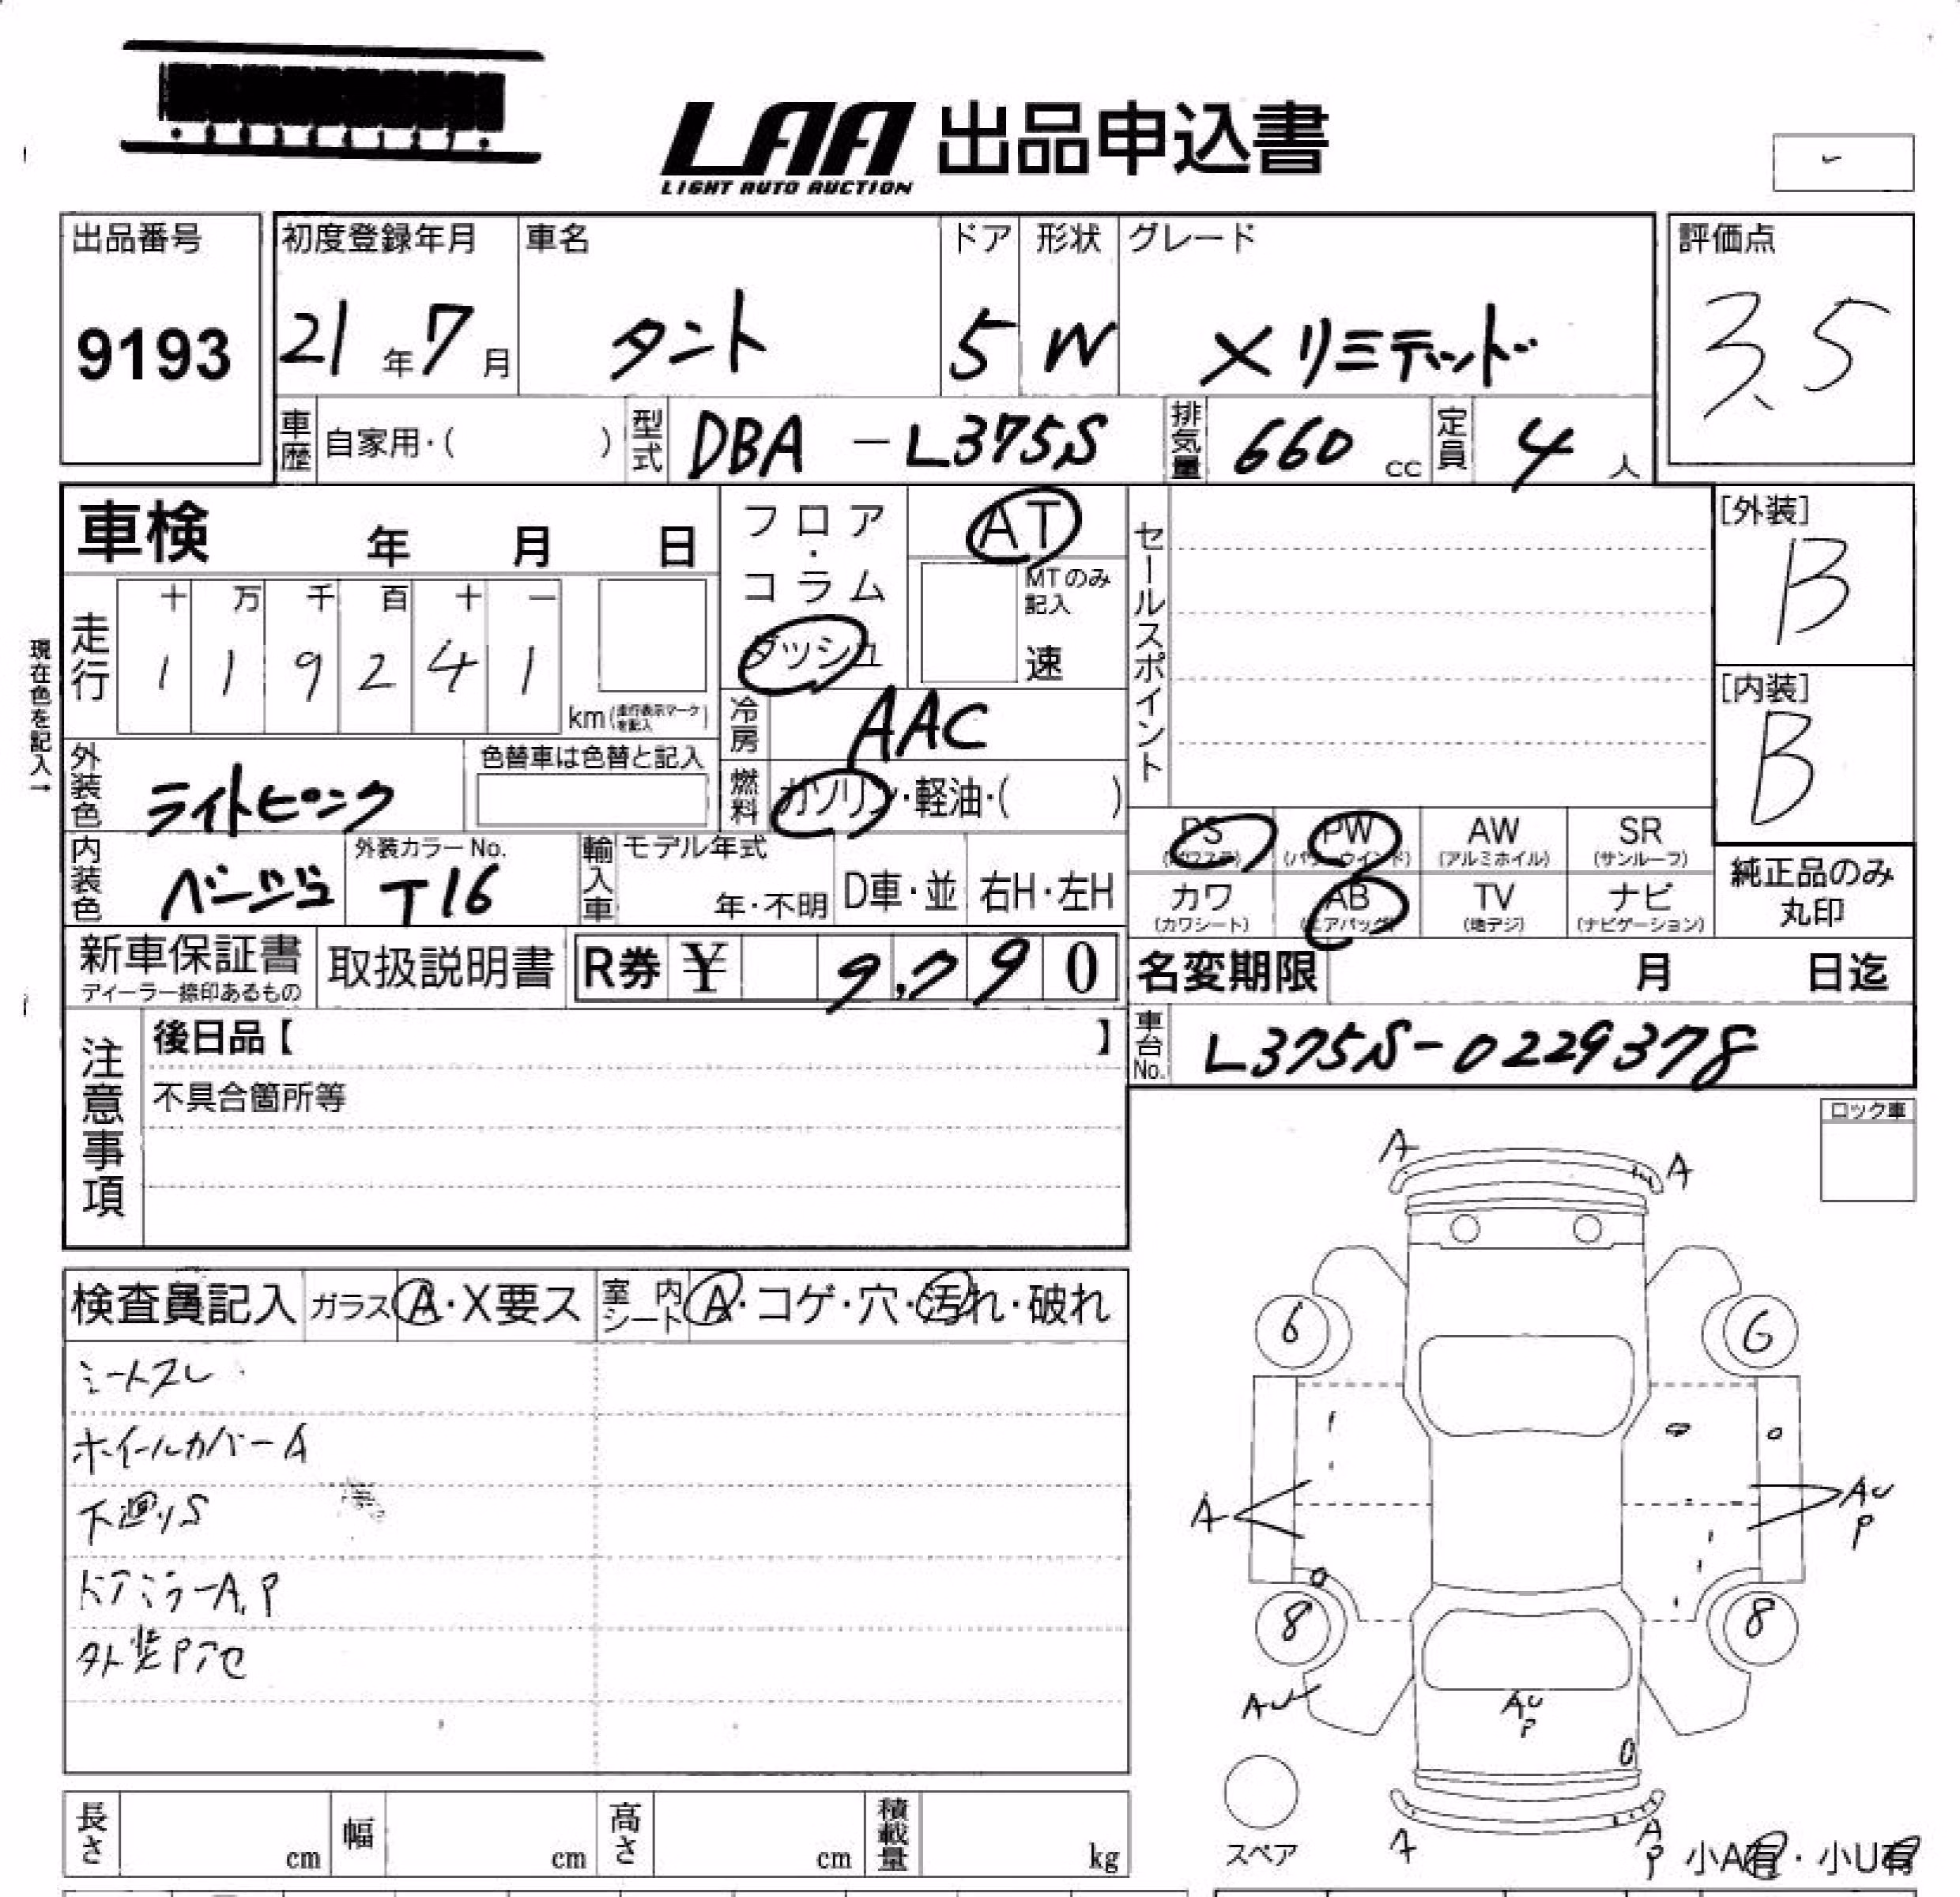 LAA 出品申込書
LIGHT AUTO AUCTION
出品番号
9193
初度登録年月
21年7月
車名
タント
ドア
5
形状
W
グレード
Xリミテッド
評価点
3.5
車歴 自家用・( )
型式 DBA-L375S
排気量 660 cc
定員 4人
車検 年 月 日
走行
十 万 千 百 十 一
1 1 9 2 4 1
km(走行表示マークを記入)
現在色を記入→
フロア・コラム
ダッシュ
AT
MTのみ記入
速
冷房 AAC
燃料 ガソリン・軽油・( )
セールスポイント
[外装]
B
[内装]
B
外装色 ライトピンク
色替車は色替と記入
内装色 ベージュ
外装カラーNo.
T16
輸入車
モデル年式
年・不明
D車・並
右H・左H
PS (パワステ)
PW (パワーウインド)
AW (アルミホイル)
SR (サンルーフ)
カワ (カワシート)
AB (エアバッグ)
TV (地デジ)
ナビ (ナビゲーション)
純正品のみ丸印
新車保証書
ディーラー捺印あるもの
取扱説明書
R券 ¥ 9,790
名変期限 月 日迄
車台No. L375S-0229378
注意事項
後日品【 】
不具合箇所等
ロック車
検査員記入
ガラス A・X要ス
室内シート A・コゲ・穴・汚れ・破れ
シートスレ
ホイールカバーA
下廻りS
ドアミラーA,P
外装Pアセ
A
A
6
6
A
AU
P
8
8
AU
AU
P
A
A
P
スペア
小A有・小U有
長さ cm
幅 cm
高さ cm
積載量 kg